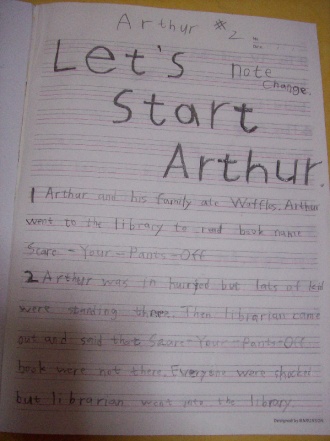 Arthur #2
Let's note
change.
Start
Arthur.
1 Arthur and his family ate Wafflls. Arthur
went to the library to read book name
Scare-Your-Pants-Off
2 Arthur was in hurryed but lots of
were standing there. Then librarian came
out and said that Scare-Your-Pants-Off
book were not there. Everyone were shocked
but librarian went into the library